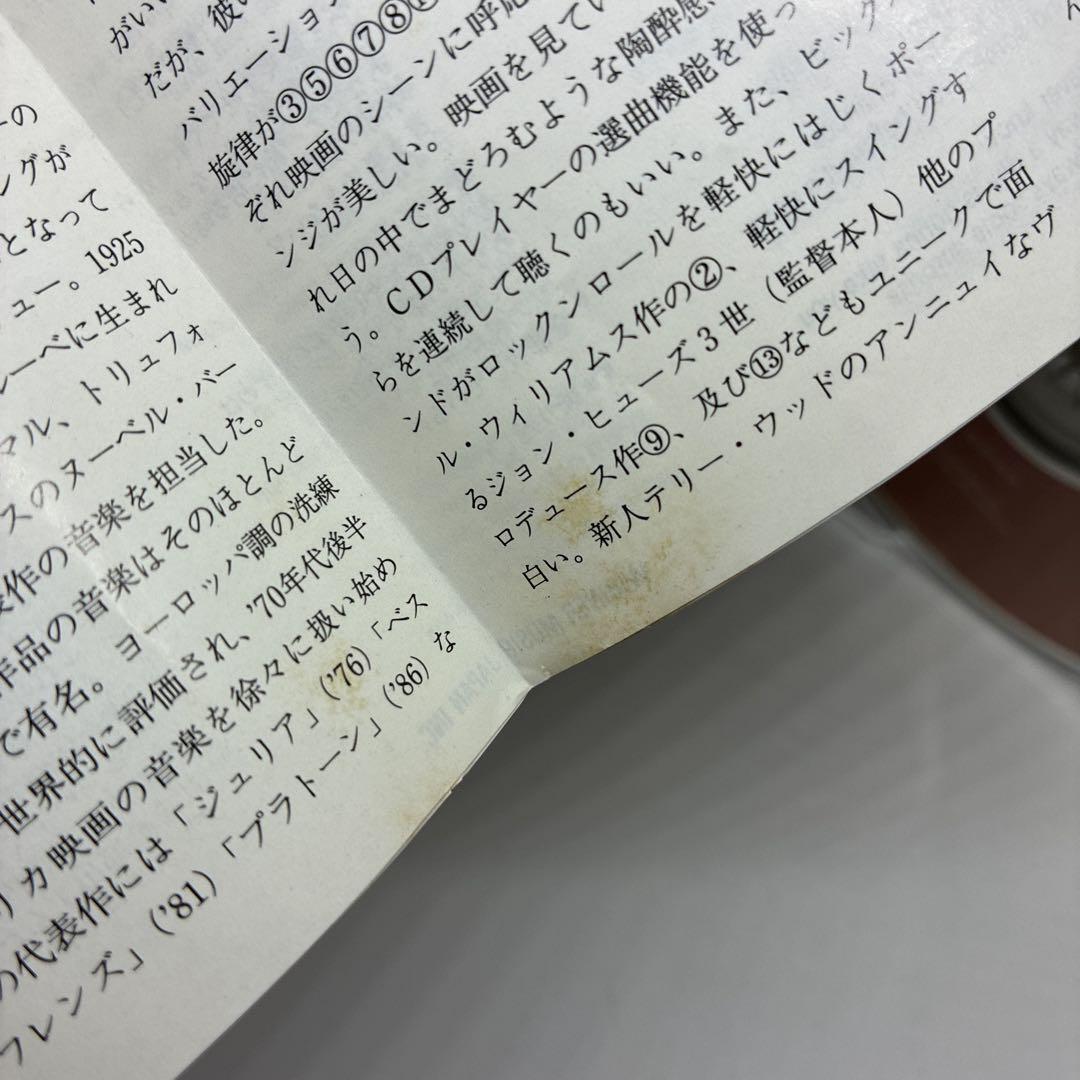 ーの
ングが
となって
ュー。1925
ルーベに生まれ
マル、トリュフォ
スのヌーベル・バー
表作の音楽を担当した。
作品の音楽はそのほとんど
で有名。ヨーロッパ調の洗練
世界的に評価され、'70年代後半
リカ映画の音楽を徐々に扱い始め
の代表作には「ジュリア」('76)「ベス
フレンズ」('81)「プラトーン」('86)な
がい
だが、彼
バリエーション
旋律が③⑤⑥⑦⑧
ぞれ映画のシーンに呼応
ンジが美しい。 映画を見てい
れ日の中でまどろむような陶酔感
う。CDプレイヤーの選曲機能を使っ
らを連続して聴くのもいい。また、ビッグ
ンドがロックンロールを軽快にはじくポー
ル・ウィリアムス作の②、軽快にスイングす
るジョン・ヒューズ3世(監督本人)他のプ
ロデュース作⑨、及び⑬などもユニークで面
白い。新人テリー・ウッドのアンニュイなヴ